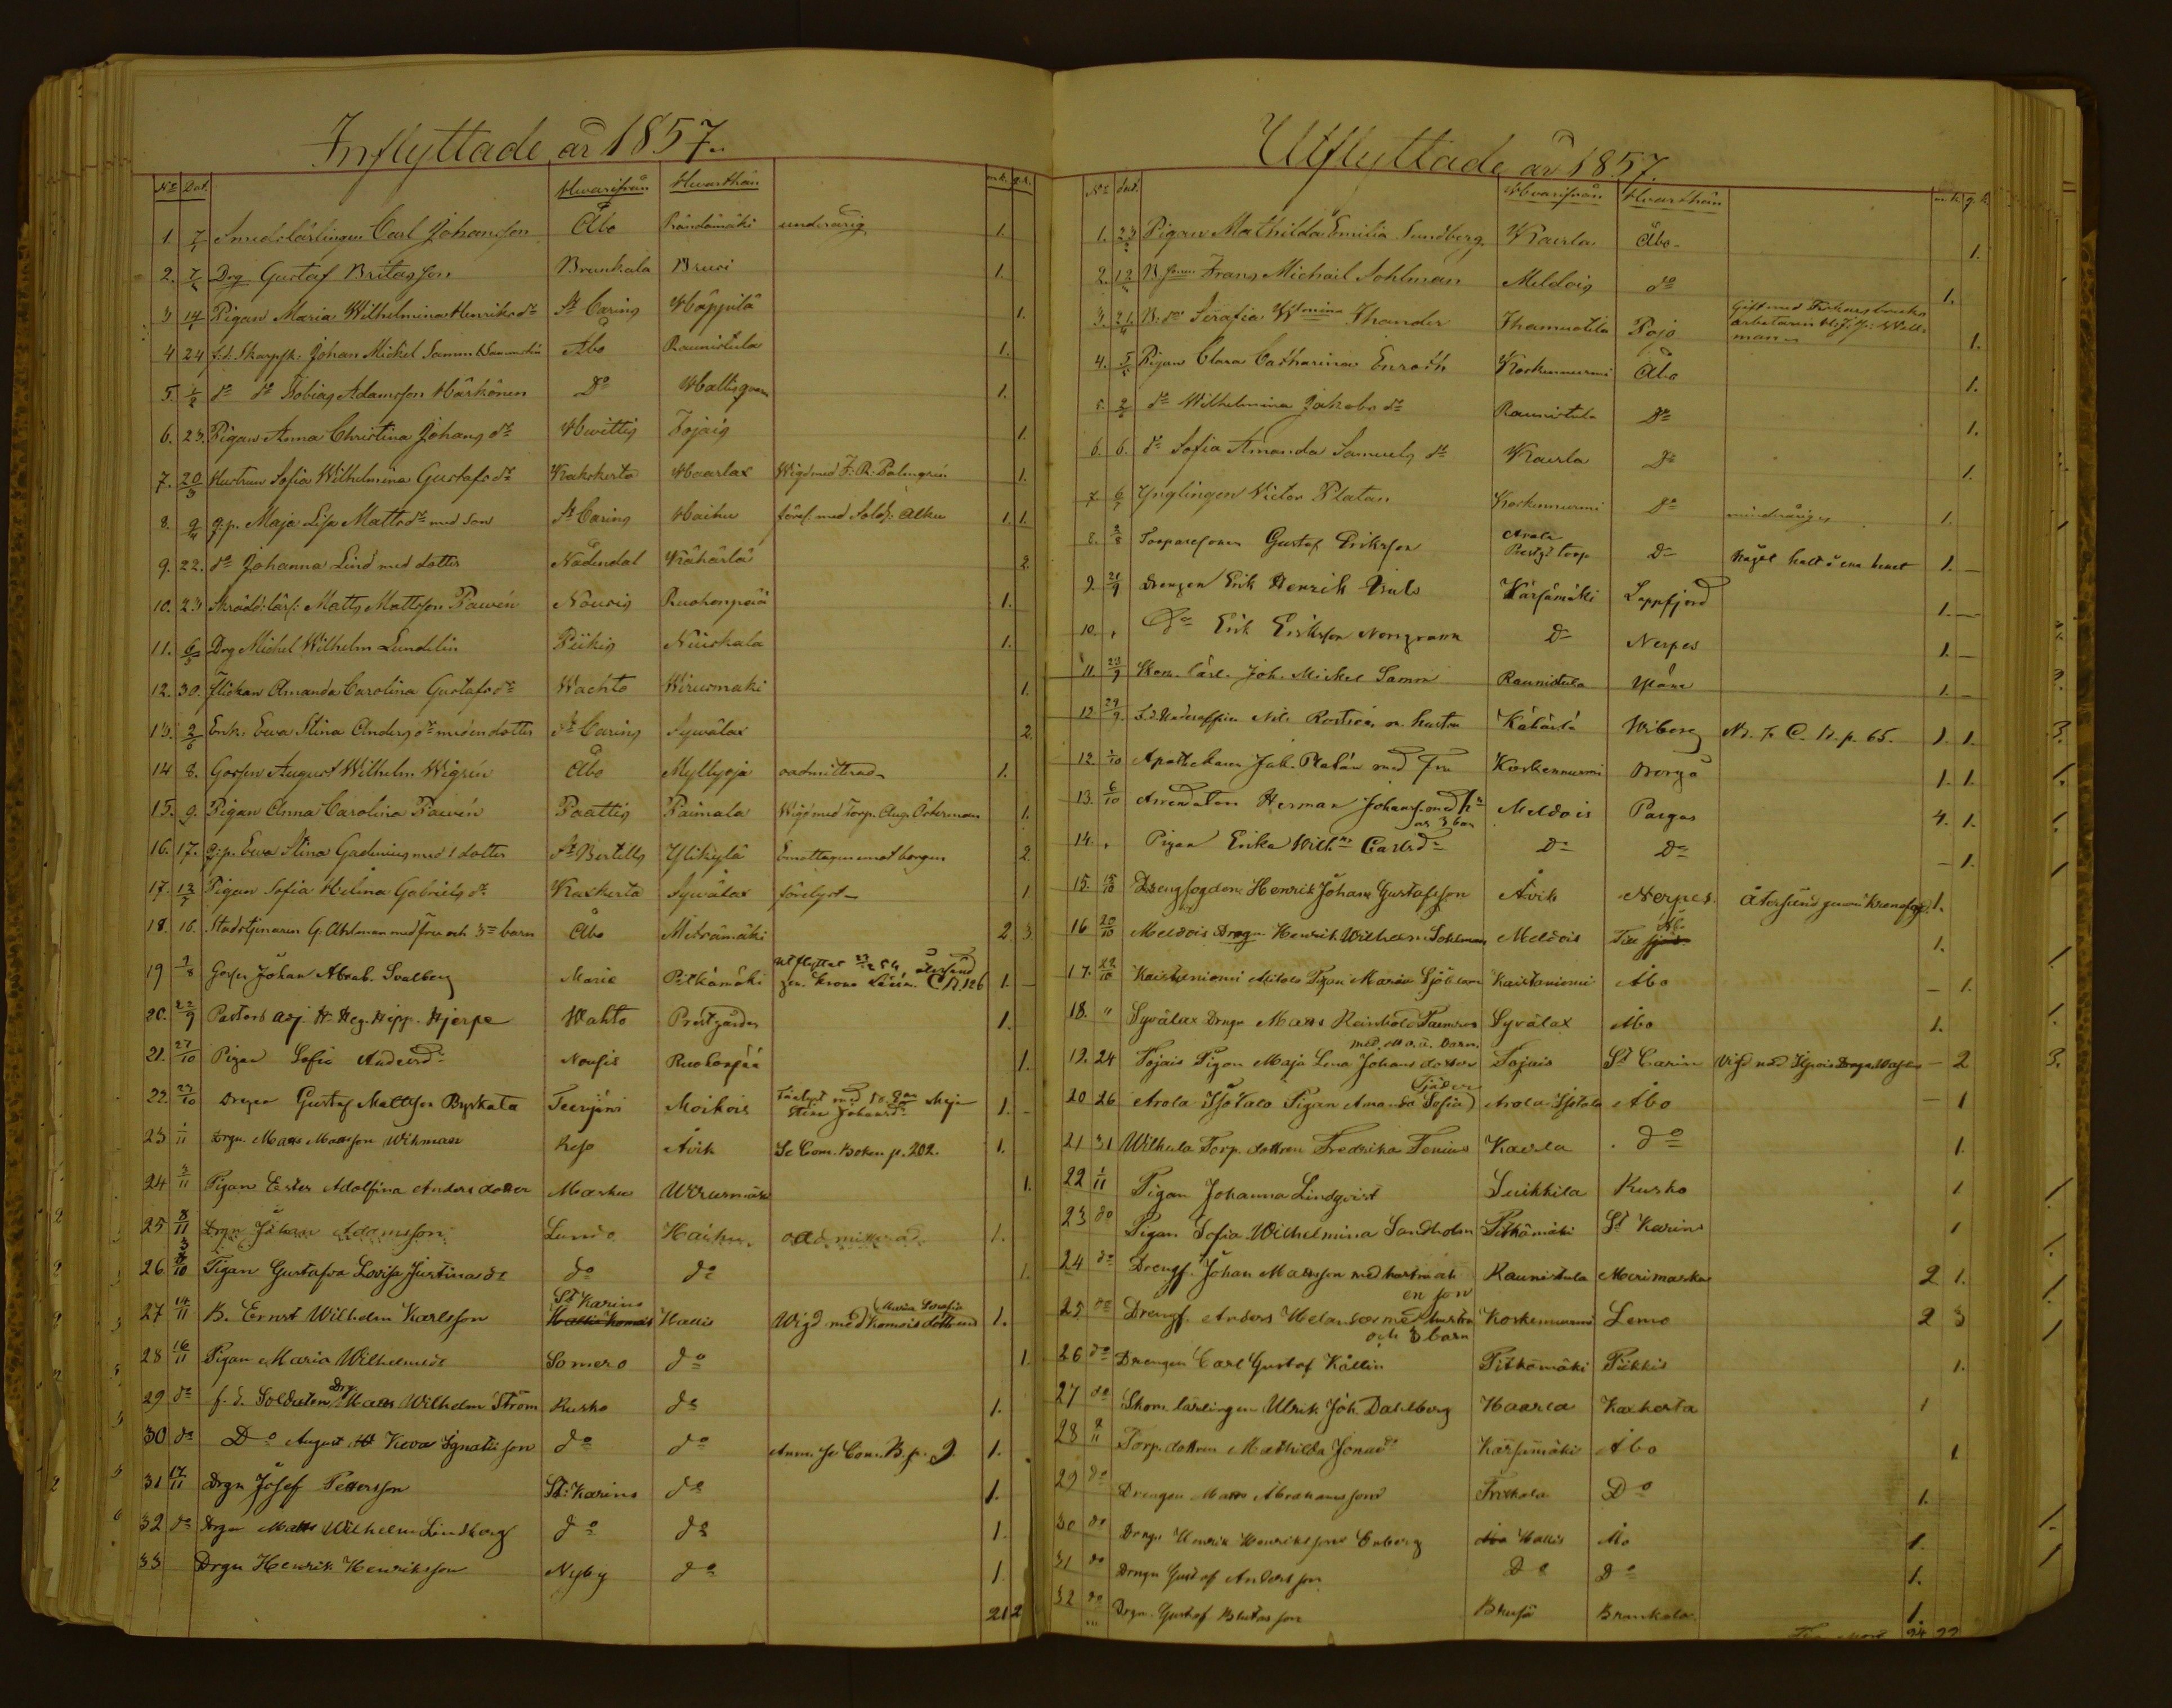 Inflyttade år 1857.
No Dat. Hvarifrån Hvarthän m.k. q.k.
1. 7/1 Smedslärlingen Carl Johansson Åbo Rändämäki underårig 1.
2. 7/1 Drg Gustaf Britasson Brunkala Brusi 1.
3 14/1 Pigan Maria Wilhelmina Henriksdr St Carins Häppilä 1.
4 24 f.d. Skarpsk: Johan Mickel Samm Åbo Raunistula 1.
5. 1/2 do do Tobias Adamsson Härkönen Do Hallis 1.
6. 23. Pigan Anna Christina Johansdr Hvittis Tojais 1.
7. 20/3 Hustrun Sofia Wilhelmina Gustafsdr Kakskerta Haarlax Wigd med F: R: Palmgrén 1.
8. 9/4 q.p. Maja Lisa Mattsdr med son St Carins Haihu förel. med Sold: Alku 1. 1.
9. 22. do Johanna Lind med dotter Nådendal Kähärlä 2.
10. 23 Skrädd: lärl: Matts Mattsson Pawén Nousis Ruohonpää 1.
11. 6/5 Drg Michel Wilhelm Lundelin Piikis Niuskala 1.
12. 30. Flickan Amanda Carolina Gustafsdr Wachto Wirusmäki 1.
13. 2/6 Enk: Ewa Stina Andersdr med en dotter St Carins Sywälax 2.
14 8. Gossen August Wilhelm Wigrén Åbo Myllyoja oadmitterad 1.
15. 9. Pigan Anna Carolina Pawén Paattis Paimala Wigd med Torp. Aug. Österman 1.
16. 17. q.p. Ewa Stina Gadenius med 1 dotter St Bertills Ylikylä Emottagen emot borgen 2.
17. 13/7 Pigan Sofia Helena Gabrielsdr Kaxkerta Sywälax förelyst 1
18. 16. Stadstjenaren G. Ahlman med fru och 3ne barn Åbo Metsämäki 2 3
19 3/8 Gossen Johan Abrah. Svalberg Marie Pitkämäki Utflyttat återsänd gen. krono C.B. 126 1. -
20. 22/9 Pastors adj. Hr Hjerpe Wahto Prestgården 1.
21. 27/10 Pigan Sofia Andersdr Nousis Ruohonpää 1.
22. 23/10 Drgen Gustaf Mattsson Byskata Teersjöni Moikois Maja Stina Johansdr 1. -
23 1/11 Drgn. Matts Mattsson Wikman Reso Åvik Se Com. Boken p. 202. 1.
24 3/11 Pigan Ester Adolfina Anders dotter Masku Wirusmäki 1.
25 8/11 Drgn Johan Adamsson Lundo Haihu oadmitterad 1.
26 Pigan Gustafva Lovisa Justina dr do do 1.
27 14/11 B. Ernst Wilhelm Karlsson St Karins Hallis Wigd med Maria Serafia 1.
28 16/11 Pigan Maria Wilhelmsdr Somero do 1
29 do f.d. Soldaten Drg Matts Wilhelm Ström Rusko do 1.
30 do Do August Keva Ignatii son do do Anm. se Com. B. p. 9 1.
31 17/11 Drgn Josef Pettersson St: Karins do 1.
32 do Drgn Matts Wilhelm Lindberg do do 1.
33 Drgn Henrik Henriksson Nyby do 1
21 2
Utflyttade år 1857.
No Dat. Hvarifrån Hvarthän m.k. q.k.
1. 23 Pigan Mathilda Emilia Sundberg Kaerla Åbo 1.
2. 12 B. sonen Frans Michail Sohlman Meldois do 1.
3. 21. B. dr Serafia Wmina Thander Ihamuotila Pojo Gift med Fiskars bruks arbetaren Wellmann 1.
4. 5 Pigan Clara Catharina Enroth Koskennurmi Åbo 1.
5. dr Wilhelmina Jakobs dr Raunistula Do 1.
6. 6. dr Sofia Amanda Samuels dr Kaerla Do 1.
7 6/7 Ynglingen Victor Platan Koskennurmi Do minderårig 1.
8. 8 Torparesonen Gustaf Eriksson Arola Prestg: torp Do Något halt å ena benet 1. -
9. 21/9 Drengen Erik Henrik Kärsämäki Lappfjerd 1. -
10. " Do Erik Eriksson Norrgrann Do Nerpes 1. -
11. 23/9 Skom. lärl. Joh. Mickel Samm Raunistula Yläne 1. -
12. 29/9 f.d. Underofficer Nils o. hustru Kähärlä Wiborg C. B. p. 65. 1. 1.
12. 1/10 Apothekaren Joh. Platán med Fru Koskennurmi Borgå 1. 1.
13. 6/10 Arrendatorn Herman Johanss. med hu o. 3 barn Meldois Pargas 4. 1.
14. " Pigan Erika Wilhna Carlsdr Do Do - 1.
15. 15/10 Drengsonen Henrik Johan Gustafsson Åvik Nerpes. Återsänd genom Kronofogd. 1.
16 20/10 Meldois Drgn Henrik Wilhelm Sohlman Meldois Åbo 1.
17. 22/10 Kaistuniemi Pigan Maria Sjöblom Kaistuniemi Åbo - 1.
18. " Syvälax Drngn Matts Reinhold Syvälax Åbo 1.
19. 24 Tojais Pigan Maja Lena Johans dotter med o.ä. barn. Tojais St Carin - 2
20 26 Arola Isotalo Pigan Amanda Sofia Tjäder Arola Isotalo Åbo - 1
21 31 Wilhula Torp. dottren Fredrika Fonius Kaerla do 1.
22 1/11 Pigan Johanna Lindqvist Suikkila Rusko 1
23 do Pigan Sofia Wilhelmina Sandholm Pitkämäki St Karins 1
24 do Drengf. Johan Mattsson med hustru och en son Raunistula Merimasku 2 1.
25 do Drengf. Anders Helander med hustru och 3 barn Koskennurmi Lemo 2 3
26 do Drengen Carl Gustaf Källin Pitkämäki Piikkis 1.
27 do Skom. lärlingen Ulrik Joh. Dahlberg Haarla Kaxkerta 1
28 Torp. dottren Mathilda Jonasdr Kärsämäki Åbo 1
29 do Drengen Matts Abrahamsson Do 1.
30 do Drngn Henrik Henriksson Enberg Hallis Åbo 1.
31 do Drngn Gustaf Andersson Do Do 1.
32 do Drgn. Gustaf Britasson Brusi Brunkala 1.
24 22